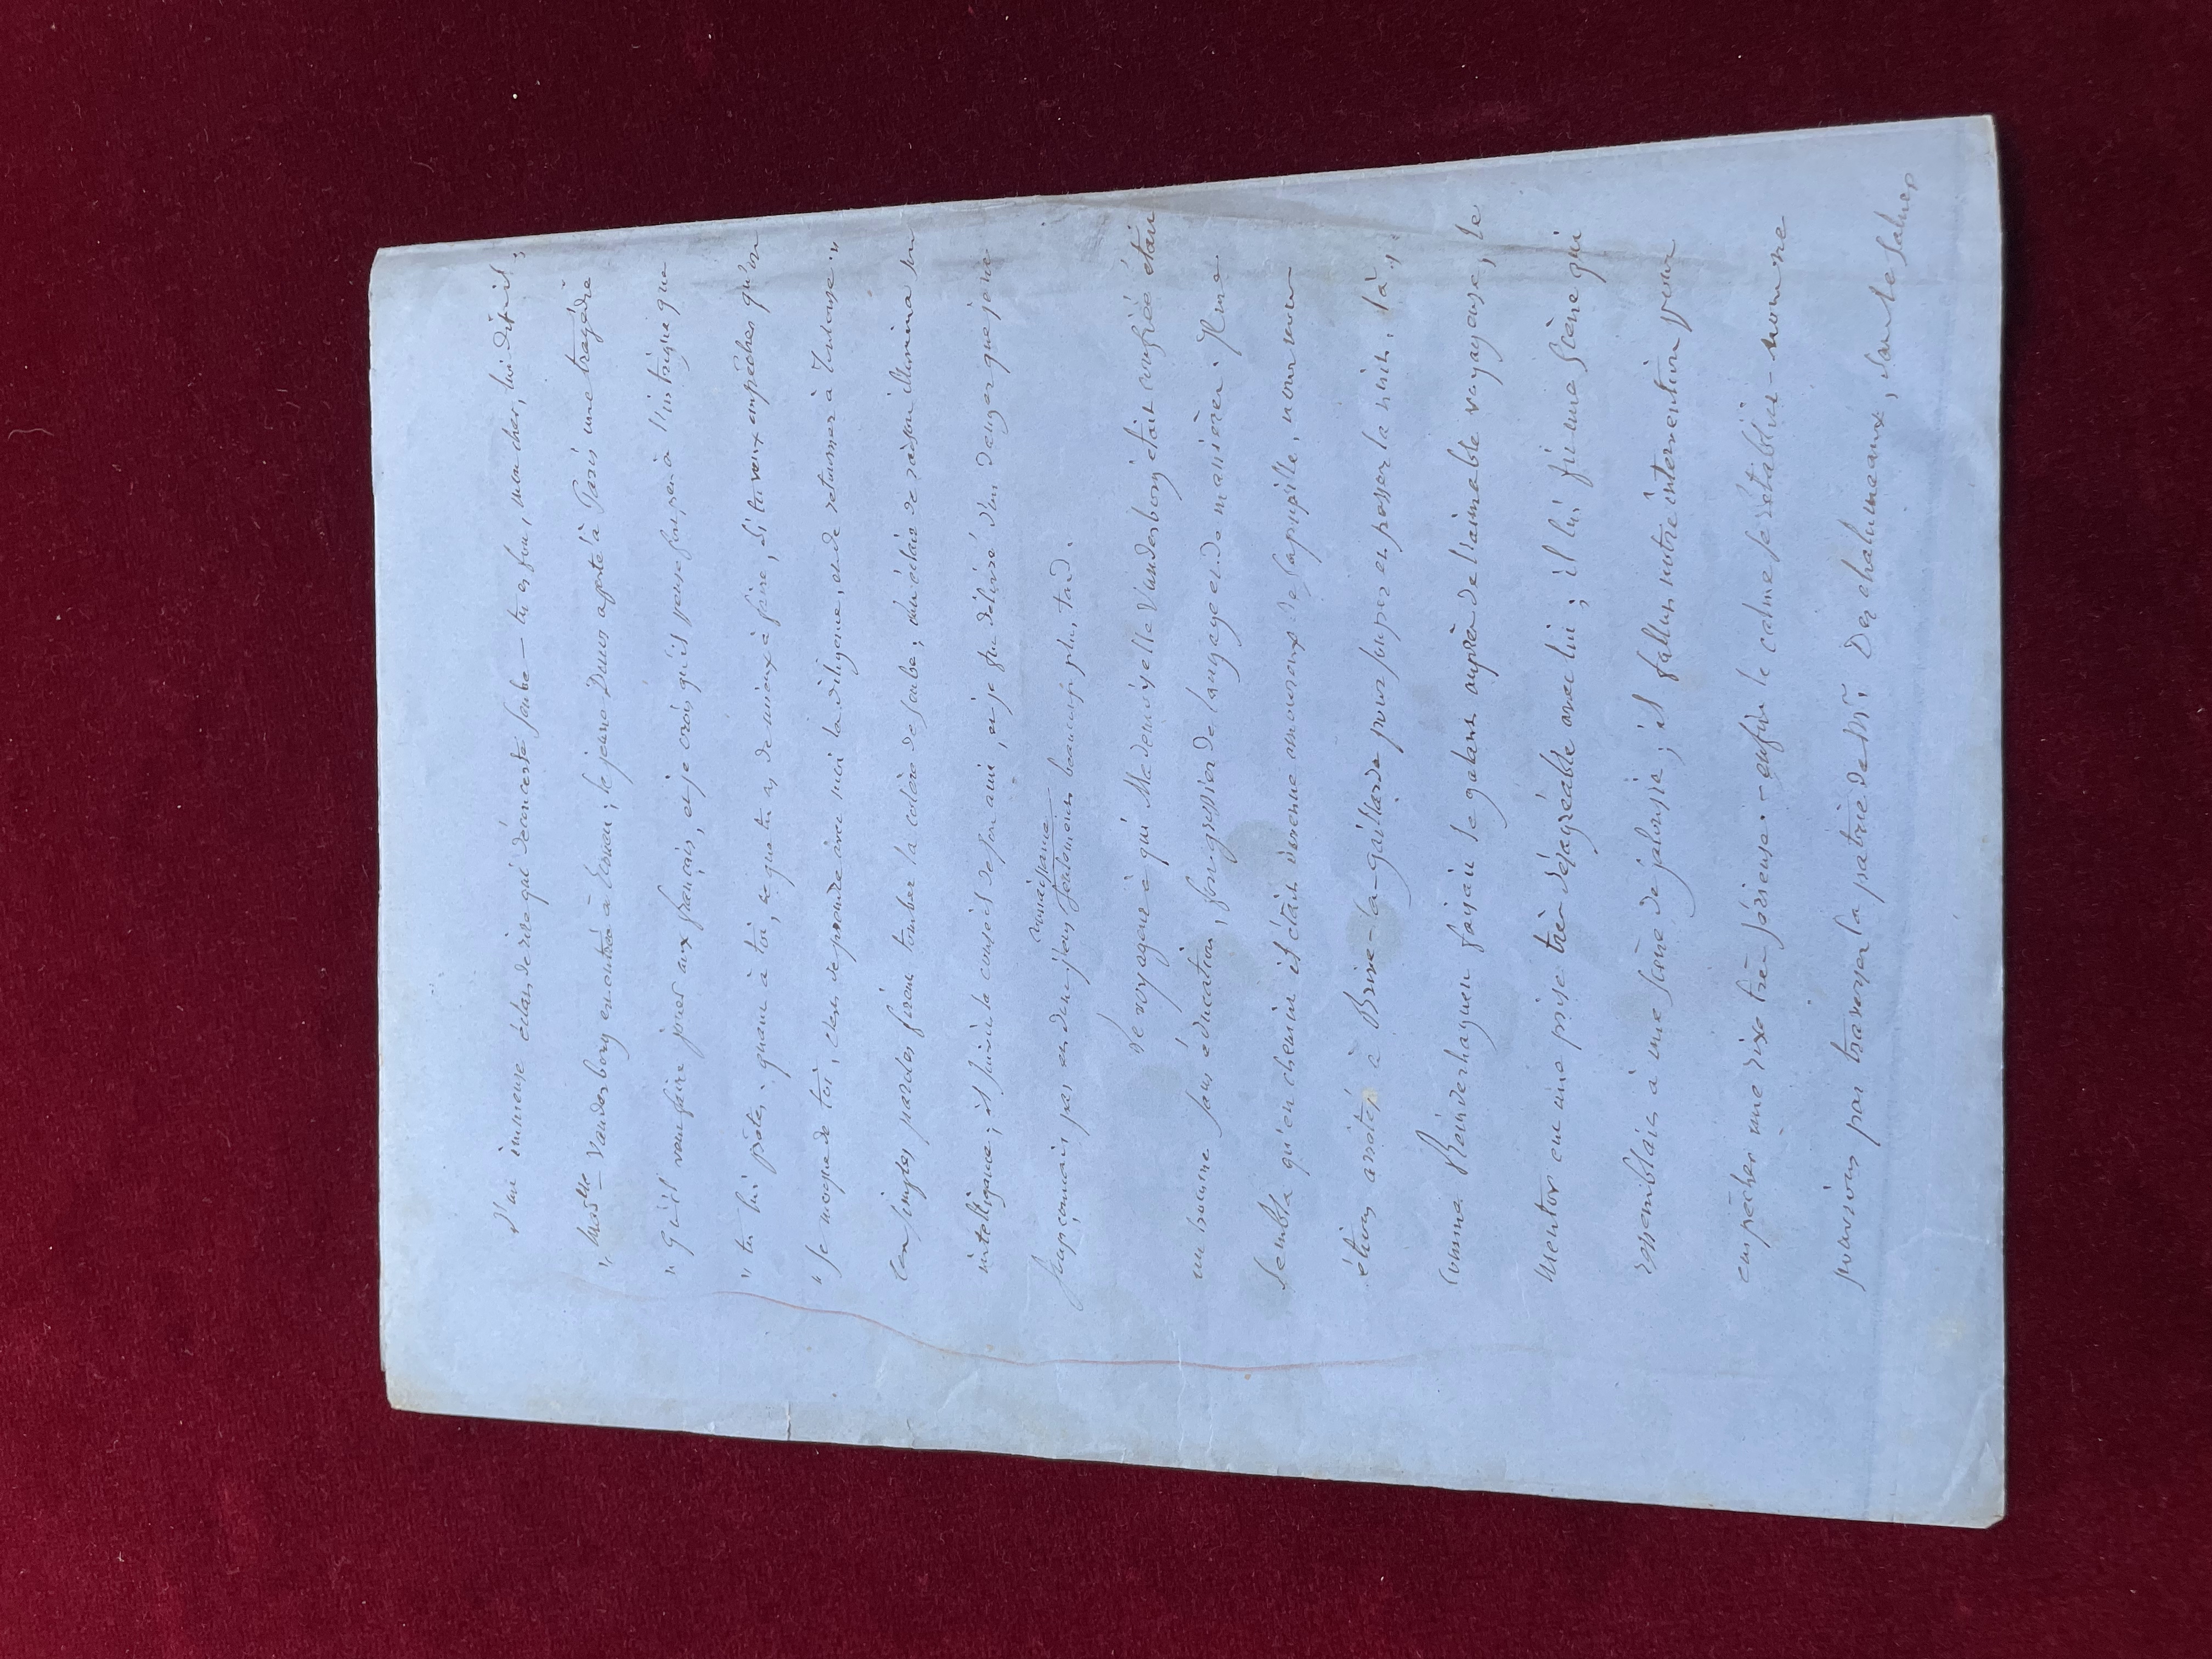 d'un immense éclat de rire qui déconcerta Soube — tu es fou, mon cher, lui dit-il;
" Mad.lle Vanderborg en outrée à l'excès; le jeune Duser apporte à Paris une tragédie
" qu'il veut faire jouer aux français, et je crois qu'ils pensent à l'intrigue que
" tu lui prêtes; quant à toi, ce que tu as de mieux à faire, si tu veux empêcher qu'on
" se moque de toi, c'est de prendre avec moi la diligence, et de retourner à Toulouse."
Ces simples paroles firent tomber la colère de Soube; un éclair de raison illumina son
intelligence; il suivit le conseil de son ami, et je fus délivré d'un danger que je ne
soupçonnais pas et dont j'eus connaissance seulement beaucoup plus tard.
Le voyageur à qui Mademoiselle Vanderborg était confiée était
un homme sans éducation, fort grossier de langage et de manières. Il me
sembla qu'en chemin il était devenu amoureux de sa pupille, nous nous
étions arrêtés à Brive-la-gaillarde pour souper et passer la nuit, là,
comme Bainderhaguen faisait le galant auprès de l'aimable voyageuse, le
mentor eut une prise très désagréable avec lui; il lui fit une scène qui
ressemblait à une scène de jalousie; il fallut notre intervention pour
empêcher une rixe très sérieuse. - enfin le calme se rétablit - nous ne
pouvions pas traverser la patrie de Mr. Des chalumeaux, sans le saluer